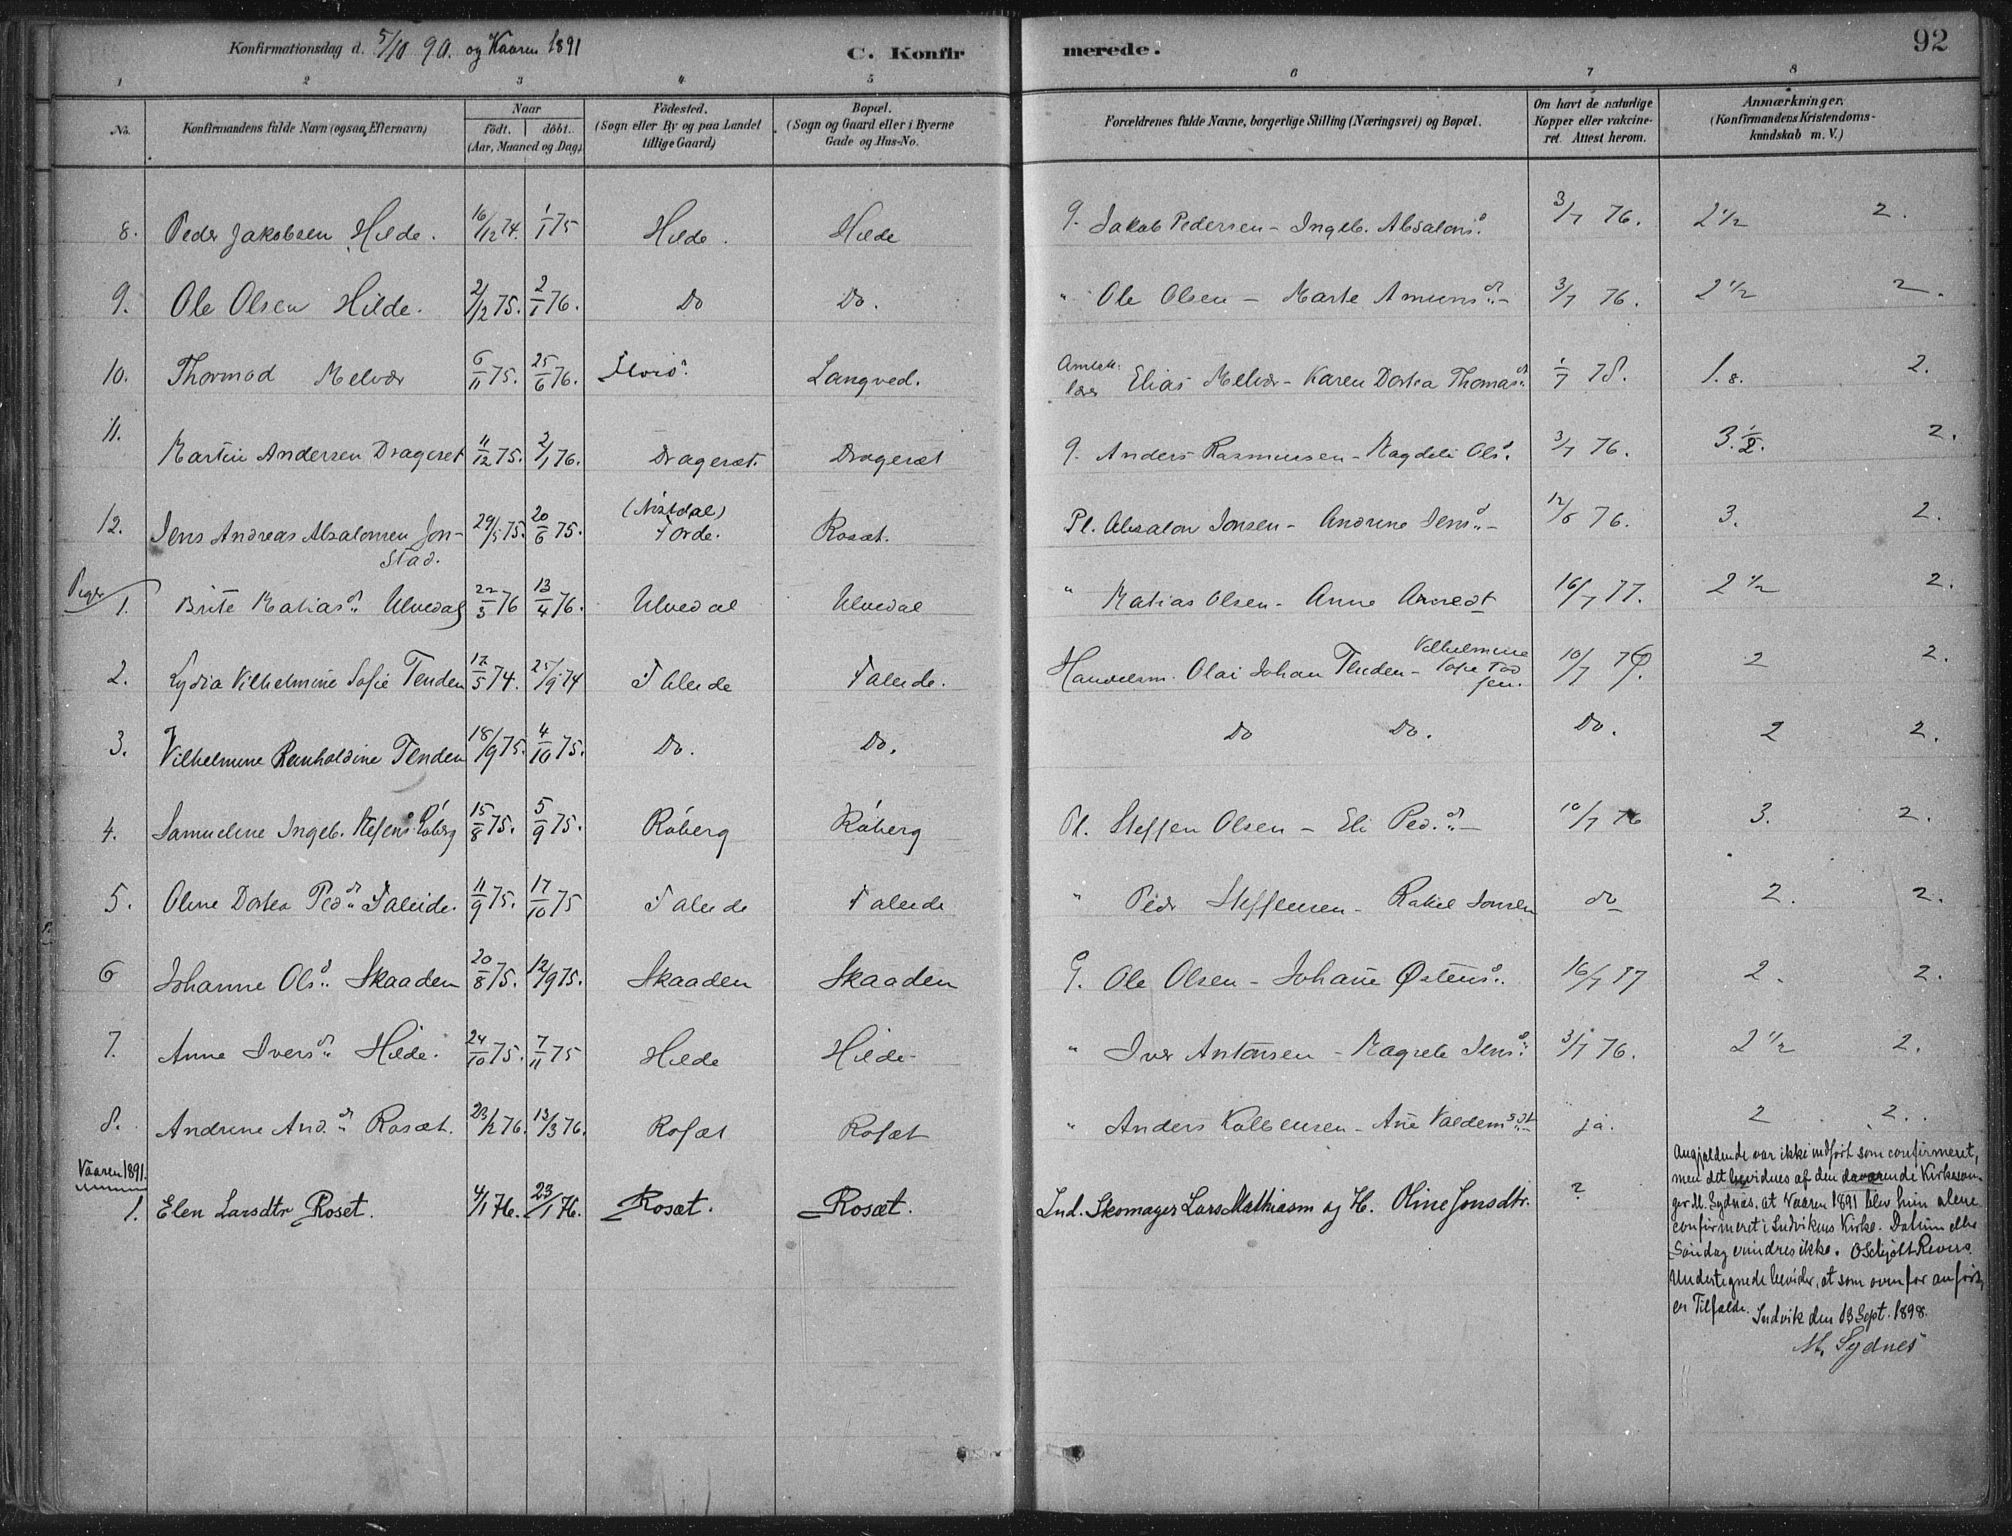 Konfirmationsdag d. 5/10 90. og Vaaren 1891
C. Konfirmerede.
92
1 2 3 4 5 6 7 8
No.
Konfirmandens fulde Navn (ogsaa Efternavn)
Naar
födt. döbt.
(Aar, Maaned og Dag)
Födested.
(Sogn eller By og paa Landet
tillige Gaard)
Bopæl.
(Sogn og Gaard eller i Byerne
Gade og Hus-No.
Forældrenes fulde Navne, borgerlige Stilling (Næringsvei) og Bopæl.
Om havt de naturlige
Kopper eller vakcine-
ret. Attest herom.
Anmærkninger.
(Konfirmandens Kristendoms-
kundskab m. V.)
8. Peder Jakobsen Hilde. 16/12 74. 1/1 75 Hilde. Hilde g. Jakob Pedersen - Ingeb. Absalons d. 3/7 76. 2 1/2 2.
9. Ole Olsen Hilde. 2/12 75. 2/1 76. Do Do. " Ole Olsen - Marte Amunsd - 3/7 76. 2 1/2 2.
10. Thormod Melvær 6/11 75. 25/6 76. Langved. Elias Melvær - Karen Dortea Thomasd. 1/7 78. 1.8. 2.
11. Martin Andersen Drageset 11/12 75. 2/1 76. Drageset. Drageset g. Anders Rasmussen - Magdeli Olsd. 3/7 76. 3. 1/2. 2.
12. Jens Andreas Absalonsen Jon-
stad. 29/5 75. 20/6 75. Förde. Roset. Pl. Absalon Jonsen - Andrine Jensd - 12/8 76. 3. 2.
Piger
1. Brite Matiasd. Ulvedal 22/3 76 13/4 76. Ulvedal Ulvedal " Matias Olsen - Anne Arnedt 16/7 77. 2 1/2 2.
2. Lydia Vilhelmine Sofie Tenden 12/5 74. 25/9 74 Faleide Faleide. Handelsm. Olai Johan Tenden - Vilhelmine
Sofie 10/7 76. 2 2.
3. Vilhelmine Reinholdine Tenden 18/9 75. 4/10 75. Do. Do. Do Do. Do. 2 2.
4. Samueline Ingeb. Stefensd. Röberg 15/8 75. 5/9 75. Röberg Röberg Pl. Steffen Olsen - Eli Ped.d. - 10/7 76 3. 2.
5. Oline Dortea Pedd. Faleide. 11/9 75. 17/10 75 Faleide Faleide " Peder Steffensen - Rakel Jonsen do 2. 2.
6 Johanne Olsd. Skaaden 20/8 75. 12/9 75. Skaaden Skaaden G. Ole Olsen - Johañe Østensd. 16/7 77 2. 2.
7. Anne Iversd. Hilde. 24/10 75. 7/11 75 Hilde Hilde - " Iver Antonsen - Magrete Jensd. 3/7 76. 2 1/2 2.
8. Andrine And.d. Roset. 23/2 76. 13/3 76. Roset Roset " Anders Kolbensen - Añe Valdemsdt ja. 2 2.
Vaaren 1891.
1. Elen Larsdtr Roset. 4/1 76. 23/1 76. Roset. Roset. Ind. Skomager Lars Mathiasen og H. Oline Jonsdtr. ?
Angjældende var ikke indført som confirmeret,
men det bevidnes af den daværende Kirkesan-
ger M. Sydnes, at Vaaren 1891 blev hun alene
confirmeret i Indvikens Kirke. Datum eller
Søndag erindres ikke. O Schjölt Revers
Undertegnede bevider, at som ovenfor anført,
er Tilfælde. Indvik den 13 Sept. 1898.
M. Sydnes